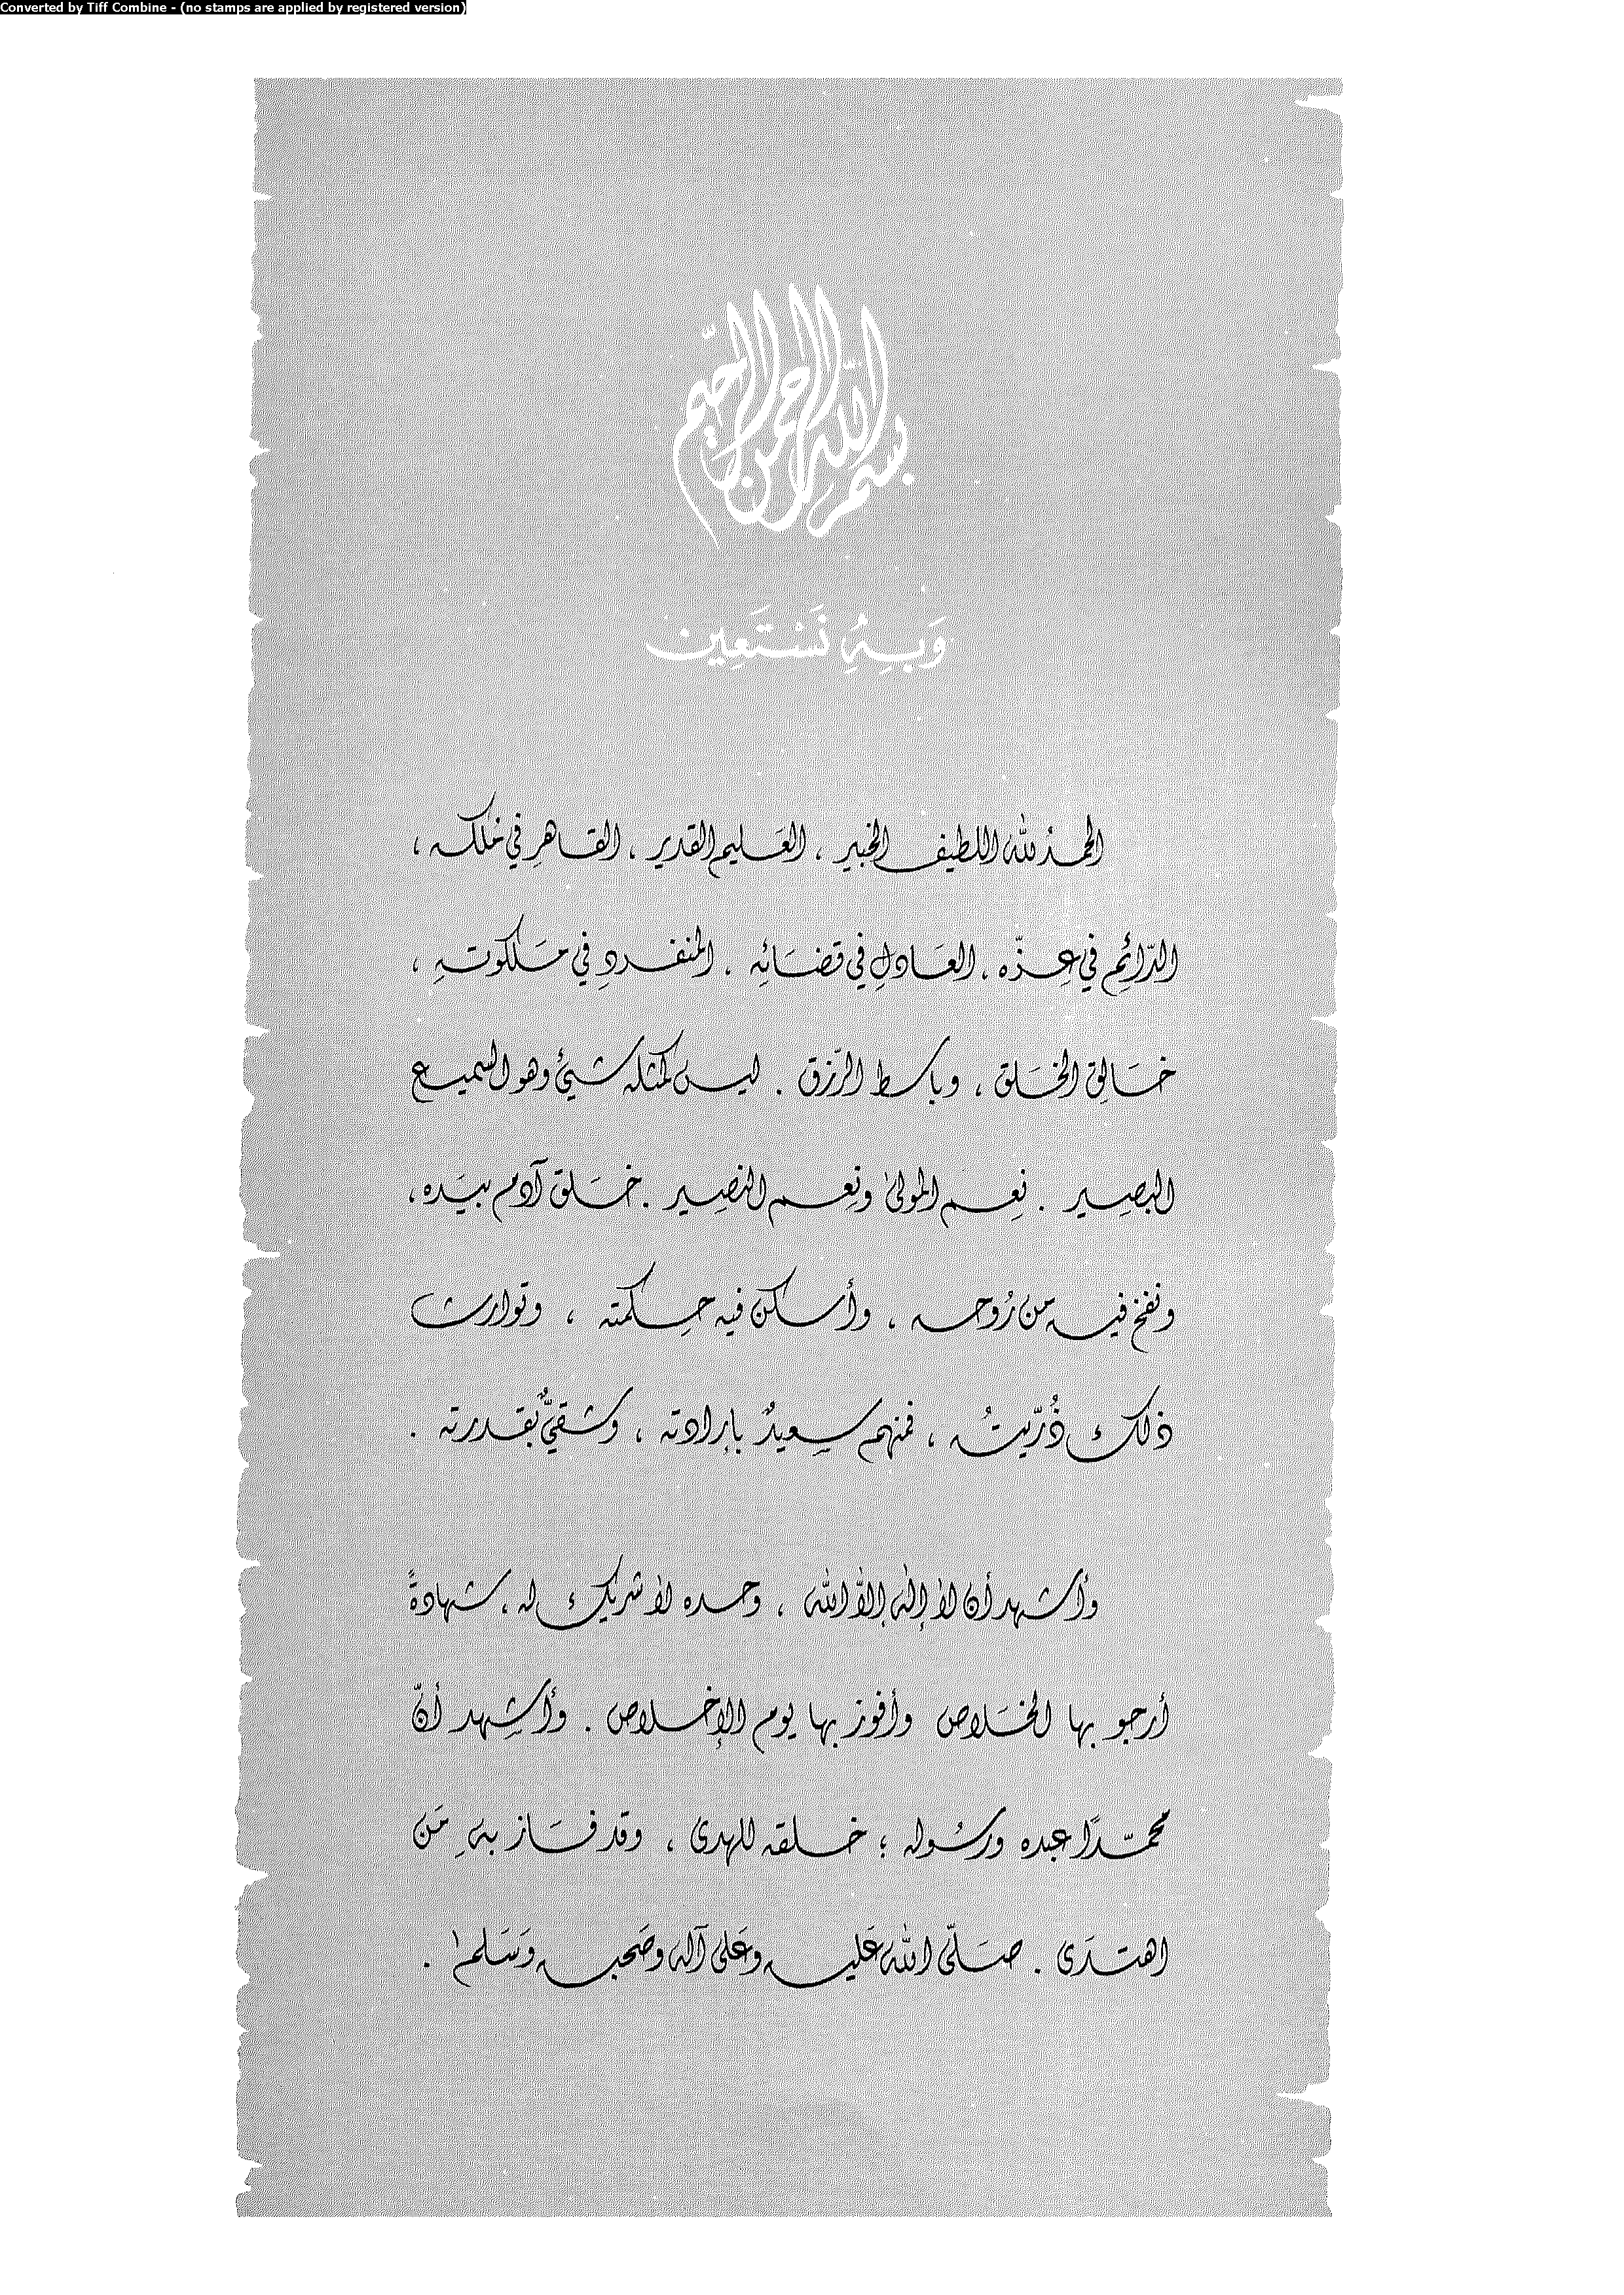 Converted by Tiff Combine - (no stamps are applied by registered version)
بسم الله الرحمن الرحيم
وَبِهِ نَسْتَعِين
الحمدُ لله اللطيف الخبير ، العَليم القدير ، القاهرِ في مُلكه ،
الدّائِم في عِزّه ، العَادلِ في قضَائِه ، المنفردِ في مَلكوتهِ ،
خَالِق الخَلق ، وباسط الرّزق . ليس كمثله شيئٌ وهو السميع
البصِير . نِعم المولىٰ ونِعم النصِير . خَلق آدم بيَده ،
ونفخ فيه من رُوحه ، وأسكن فيه حِكمته ، وتوارث
ذلك ذُرّيتُه ، فمنهم سعِيدٌ بإرادته ، وشقيٌّ بقدرته .
وأشهد أن لا إله إلا الله ، وحده لا شريك له ، شهادةً
أرجو بها الخَلاص وأفوز بها يوم الإخلاص . وأشهد أنّ
محمّدًا عبده ورسُوله ؛ خلقه للهدى ، وقد فَاز بهِ مَن
اهتَدَى . صَلّى الله عَليه وعَلى آله وصَحبه وَسَلم .